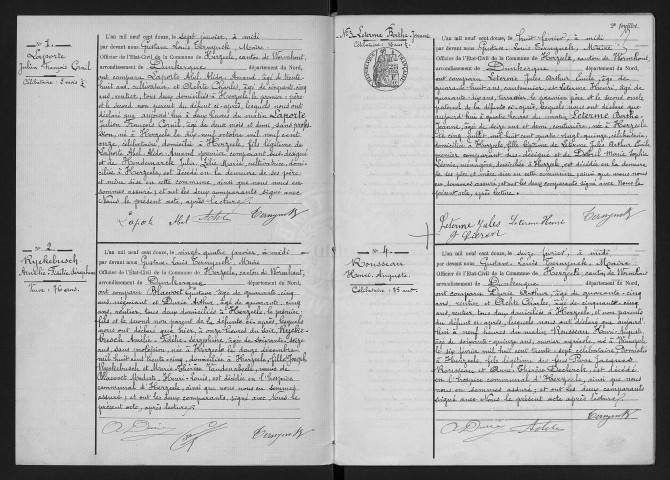 N° 1.
Laporte
Julien François Cyril
Célibataire : 2 mois ½
L'an mil neuf cent douze, le sept janvier, à midi
par devant nous Gustave Louis Ternynck, Maire
Officier de l'État-Civil de la Commune de Herzeele, canton de Wormhout,
arrondissement de Dunkerque département du Nord,
ont comparu Laporte Abel Aldon Amand, âgé de trente-
huit ans, cultivateur, et Achte Charles, âgé de cinquante cinq
ans, rentier, tous deux domiciliés à Herzeele, le premier père
et le second non parent du défunt ci-après, lesquels nous ont
déclaré que aujourd'hui à deux heures du matin Laporte
Julien François Cyril âgé de deux mois et demi, sans profes-
sion, né à Herzeele le dix-neuf octobre mil neuf cent
onze, célibataire, domicilié à Herzeele, fils légitime de
Laporte Abel Aldon Amand premier comparant sus-désigné
et de Julie Marie, cultivatrice, domi-
ciliée à Herzeele, est décédé en la demeure de ses père
et mère sise en cette commune, ainsi que nous nous en
sommes assuré ; et ont les deux comparants signé avec
Nous le présent acte, après lecture.
Laporte Abel Achte Ternynck
N° 2.
Ryckebusch
Amélie Fidèle Séraphine
Veuve : 76 ans.
L'an mil neuf cent douze, le vingt quatre janvier, à midi
par devant nous Gustave Louis Ternynck, Maire
Officier de l'État-Civil de la Commune de Herzeele, canton de Wormhout,
arrondissement de Dunkerque département du Nord,
ont comparu Blaevoet âgé de quarante-cinq
ans, négociant et Durie Arthur, âgé de quarante-cinq
ans, rentier, tous deux domiciliés à Herzeele, le premier
fils et le second non parent de la défunte ci-après, lesquels
nous ont déclaré que hier, à onze heures du soir, Rycke-
busch Amélie Fidèle Séraphine, âgée de soixante-seize
ans, sans profession, née à Herzeele le deux décembre
mil huit cent trente-cinq, domiciliée à Herzeele, fille de Joseph
Ryckebusch et Marie Thérèse Vandenabeele, veuve de
Blaevoet Modeste Henri Louis, est décédée en l'hospice
communal d'Herzeele, ainsi que nous nous en sommes
assuré ; et ont les deux comparants, signé avec Nous le
présent acte, après lecture.
A Durie Ternynck
2e feuillet.
N° 3 Leterme Berthe Jeanne
Célibataire : 16 ans ½
L'an mil neuf cent douze, le huit février, à midi
par devant nous Gustave Louis Ternynck, Maire
Officier de l'État-Civil de la Commune de Herzeele, canton de Wormhout,
arrondissement de Dunkerque département du Nord,
ont comparu Leterme Jules Arthur Émile, âgé de
quarante-huit ans, cantonnier et Leterme Henri, âgé de
quarante-six ans, terrassier le premier père et le second oncle
paternel de la défunte ci-après, lesquels nous ont déclaré que
aujourd'hui à quatre heures du matin, Leterme Berthe
Jeanne, âgée de seize ans et demi, couturière, née à Herzeele
le cinq juillet mil huit cent quatre-vingt-quinze, célibataire,
domiciliée à Herzeele, fille légitime de Leterme Jules Arthur Émile
premier comparant sus-désigné et de Debril Marie Sophie
Cornélie, ménagère, domiciliée à Herzeele, est décédée en la demeure
de ses père et mère sise en cette commune, ainsi que nous nous
en sommes assuré ; et ont les deux comparants signé avec Nous le
présent acte, après lecture.
Leterme Jules Leterme Henri Ternynck
N° 4.
Rousseau
Henri Auguste
Célibataire : 95 ans
L'an mil neuf cent douze, le seize février, à midi
par devant nous Gustave Louis Ternynck, Maire
Officier de l'État-Civil de la Commune de Herzeele, canton de Wormhout,
arrondissement de Dunkerque département du Nord,
ont comparu Durie Arthur, âgé de quarante-cinq
ans, rentier et Achte Charles, âgé de cinquante-cinq
ans, rentier, tous deux domiciliés à Herzeele, et non parents
du défunt ci-après, lesquels nous ont déclaré que aujour-
d'hui à neuf heures du matin, Rousseau Henri Auguste
âgé de
le dix février mil huit cent sept, célibataire, domicilié
à Herzeele, fils légitime de Pierre Jacques
Rousseau et Anne Thérèse Declerck, est décédé
en l'hospice communal d'Herzeele, ainsi que nous
nous en sommes assuré ; et ont les deux comparants
signé avec Nous le présent acte, après lecture.
A Durie Achte Ternynck